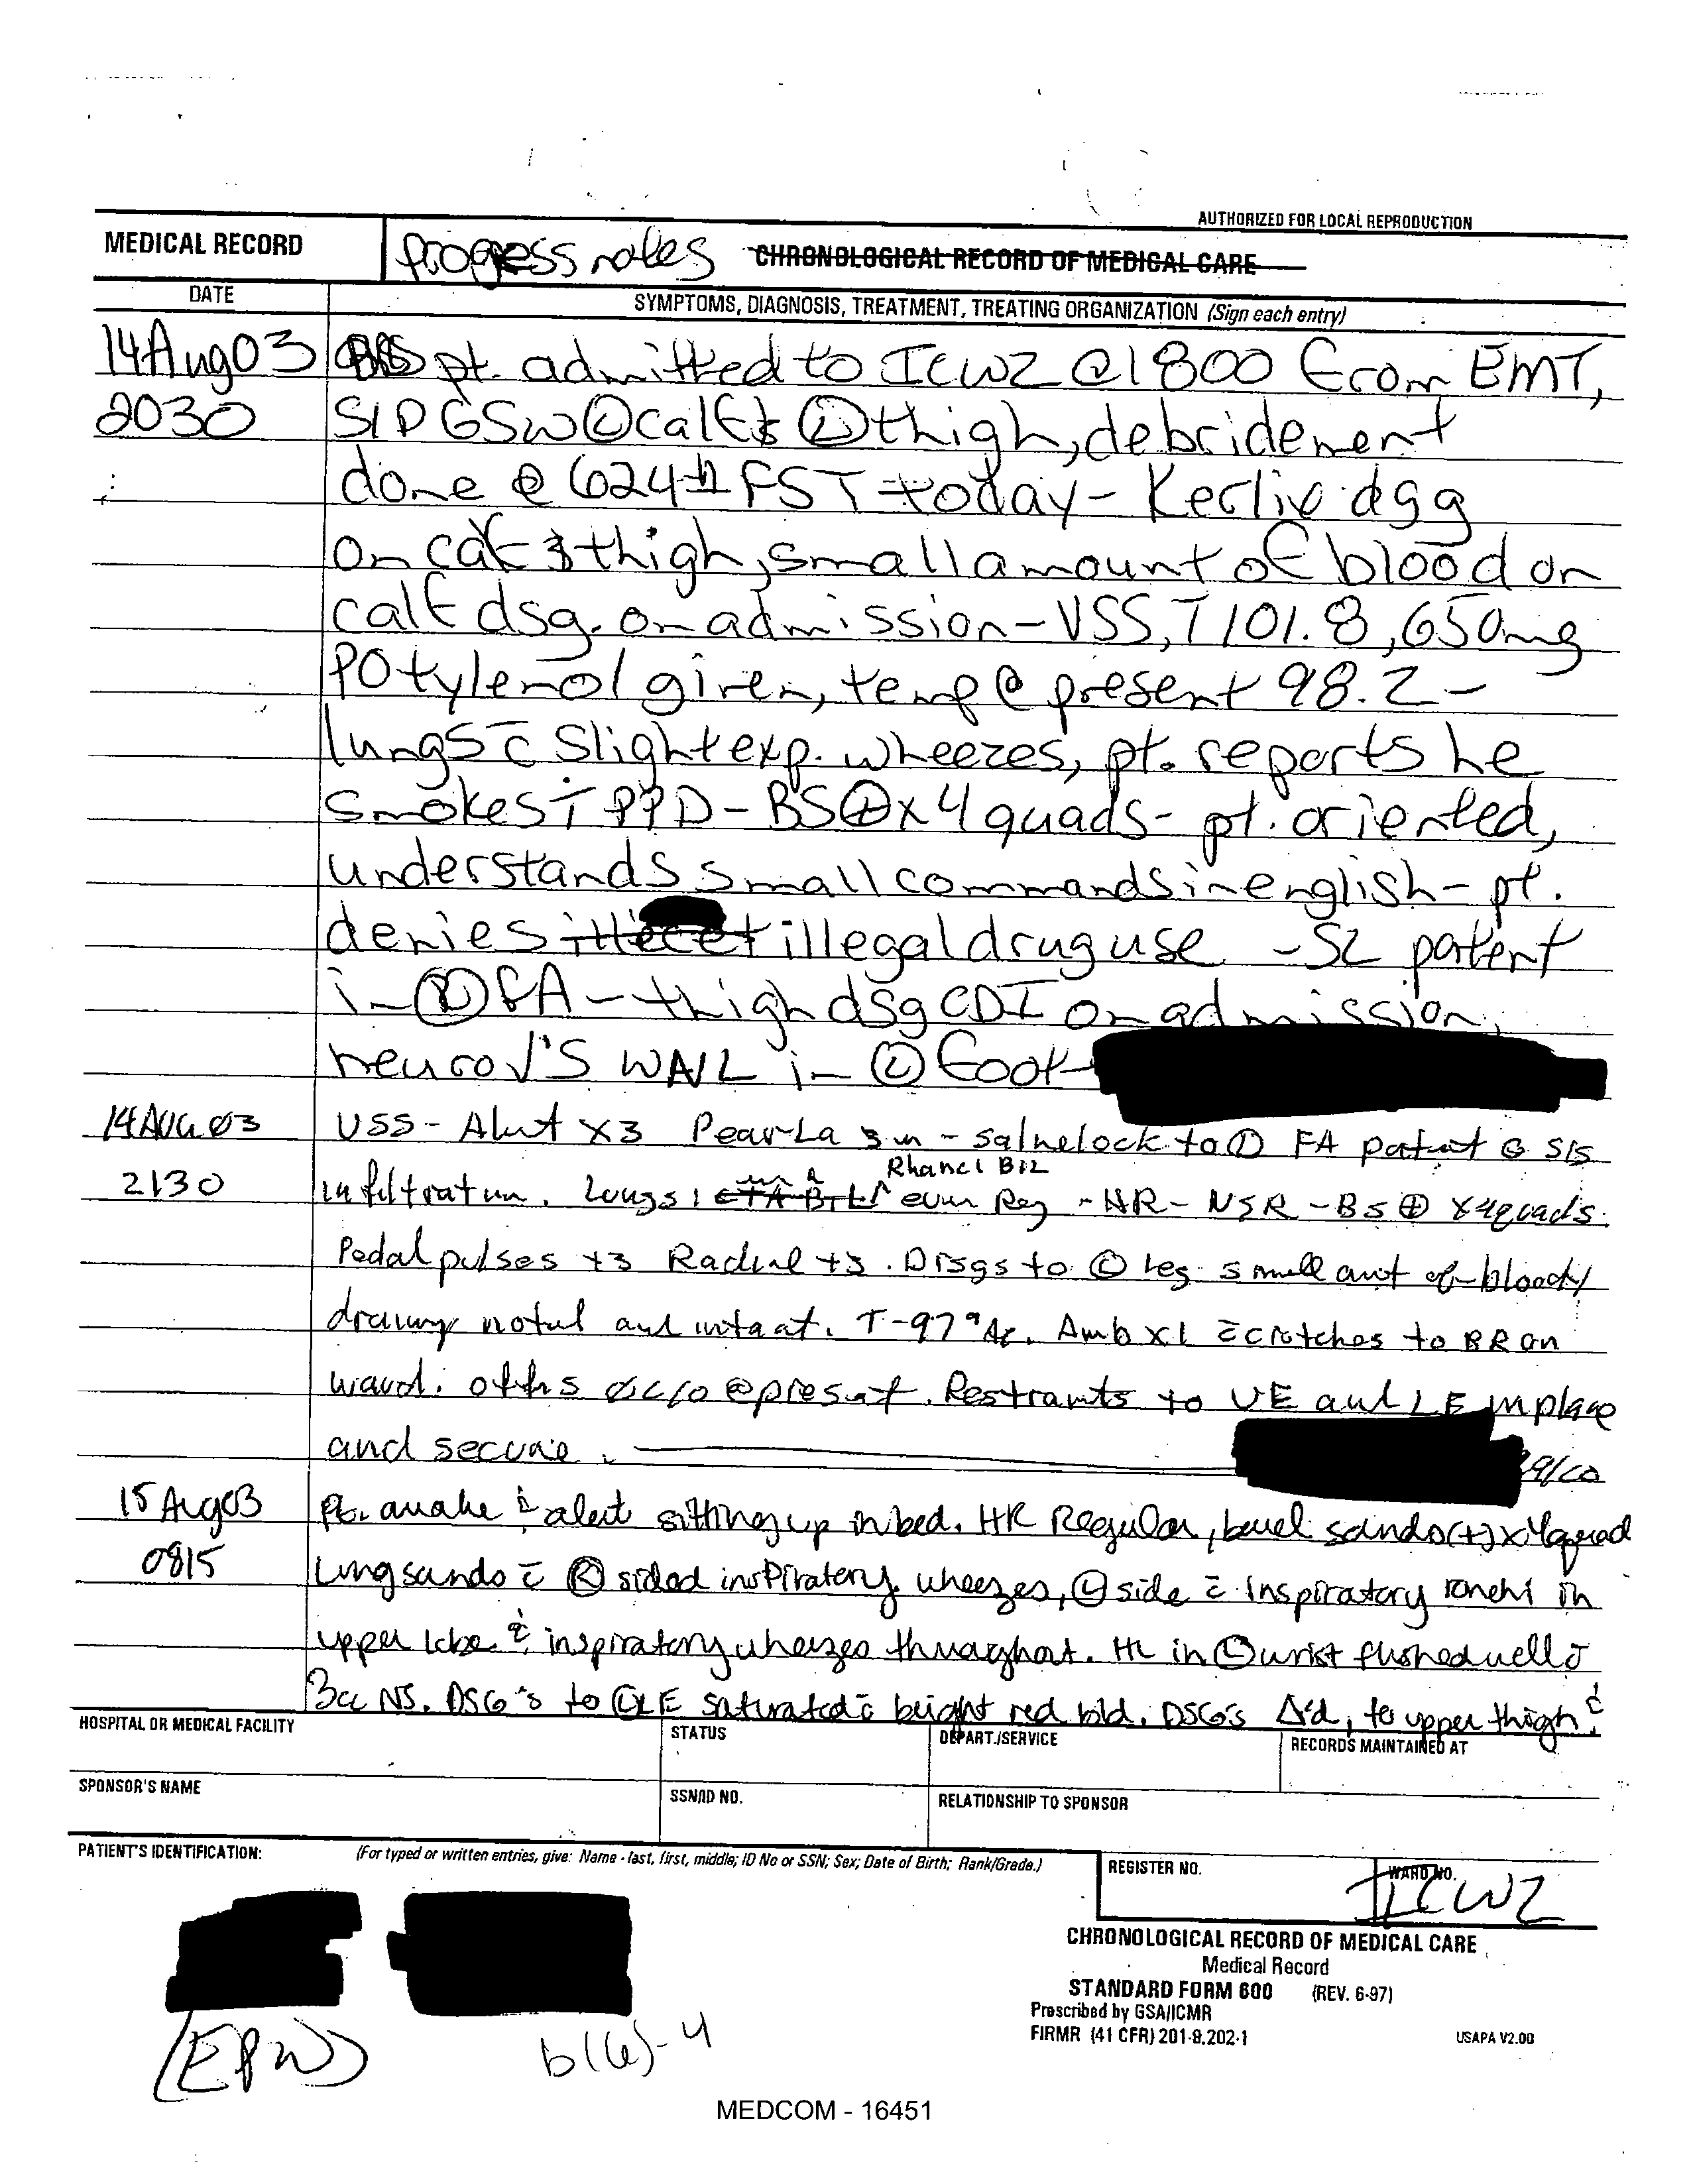 AUTHORIZED FOR LOCAL REPRODUCTION
MEDICAL RECORD progress notes CHRONOLOGICAL RECORD OF MEDICAL CARE
DATE SYMPTOMS, DIAGNOSIS, TREATMENT, TREATING ORGANIZATION (Sign each entry)
14Aug03 pt. admitted to ICW2 @1800 from EMT,
2030 S/P GSW Ⓛ calf & Ⓛ thigh, debridement
done @ 624th FST today - Kerlix dsg
on calf & thigh, small amount of blood on
calf dsg. on admission - VSS, T 101.8, 650mg
PO tylenol given, temp @ present 98.2 -
lungs c̄ slight exp. wheezes, pt. reports he
smokes T PPD - BS ⊕ x 4 quads - pt. oriented,
understands small commands in english - pt.
denies illegal drug use - SL patent
in Ⓡ FA - thigh dsg CDI on admission,
neuro √'s WNL in Ⓛ foot
14 AUG 03 VSS - Alert x3 Pearrla - salinelock to FA patent s/s
2130 infiltration. Lungs: Rhanci Bil even Reg - HR - NSR - BS ⊕ x 4quads.
Pedal pulses +3 Radial +3. Drsgs to Ⓛ leg small amt of bloody
drainage noted and intact. T-97⁹ Ax. Amb x1 c̄ crutches to BR on
ward. offers Ø c/o @ present. Restraints to UE and LE in place
and secure. 91C
15 Aug 03 Pt. awake & alert sitting up in bed. HR Regular, bowel sounds (+) x 4quad
0815 Lung sounds c̄ Ⓡ sided inspiratory wheezes, Ⓛ side c̄ inspiratory ronchi in
upper lobe & inspiratory wheezes throughout. HL in Ⓛ wrist flushed well c̄
3cc NS. DSG's to Ⓛ LE saturated c̄ bright red bld. DSG's Δ'd, to upper thigh &
HOSPITAL OR MEDICAL FACILITY STATUS DEPART./SERVICE RECORDS MAINTAINED AT
SPONSOR'S NAME SSN/ID NO. RELATIONSHIP TO SPONSOR
PATIENT'S IDENTIFICATION: (For typed or written entries, give: Name - last, first, middle; ID No or SSN; Sex; Date of Birth; Rank/Grade.) REGISTER NO. WARD NO.
ICW2
CHRONOLOGICAL RECORD OF MEDICAL CARE
Medical Record
STANDARD FORM 600 (REV. 6-97)
Prescribed by GSA/ICMR
FIRMR (41 CFR) 201-9.202-1 USAPA V2.00
(EPW) b(6)-4
MEDCOM - 16451